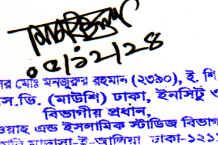 ০৫/১২/২৪
মোঃ মনজুরুর রহমান (২৩৯০), ই. শি
স.ডি. (মাউশি) ঢাকা, ইনসিটু
বিভাগীয় প্রধান,
এন্ড ইসলামিক স্টাডিজ বিভাগ
মাদ্রাসা-ই-আলিয়া ঢাকা-১২১